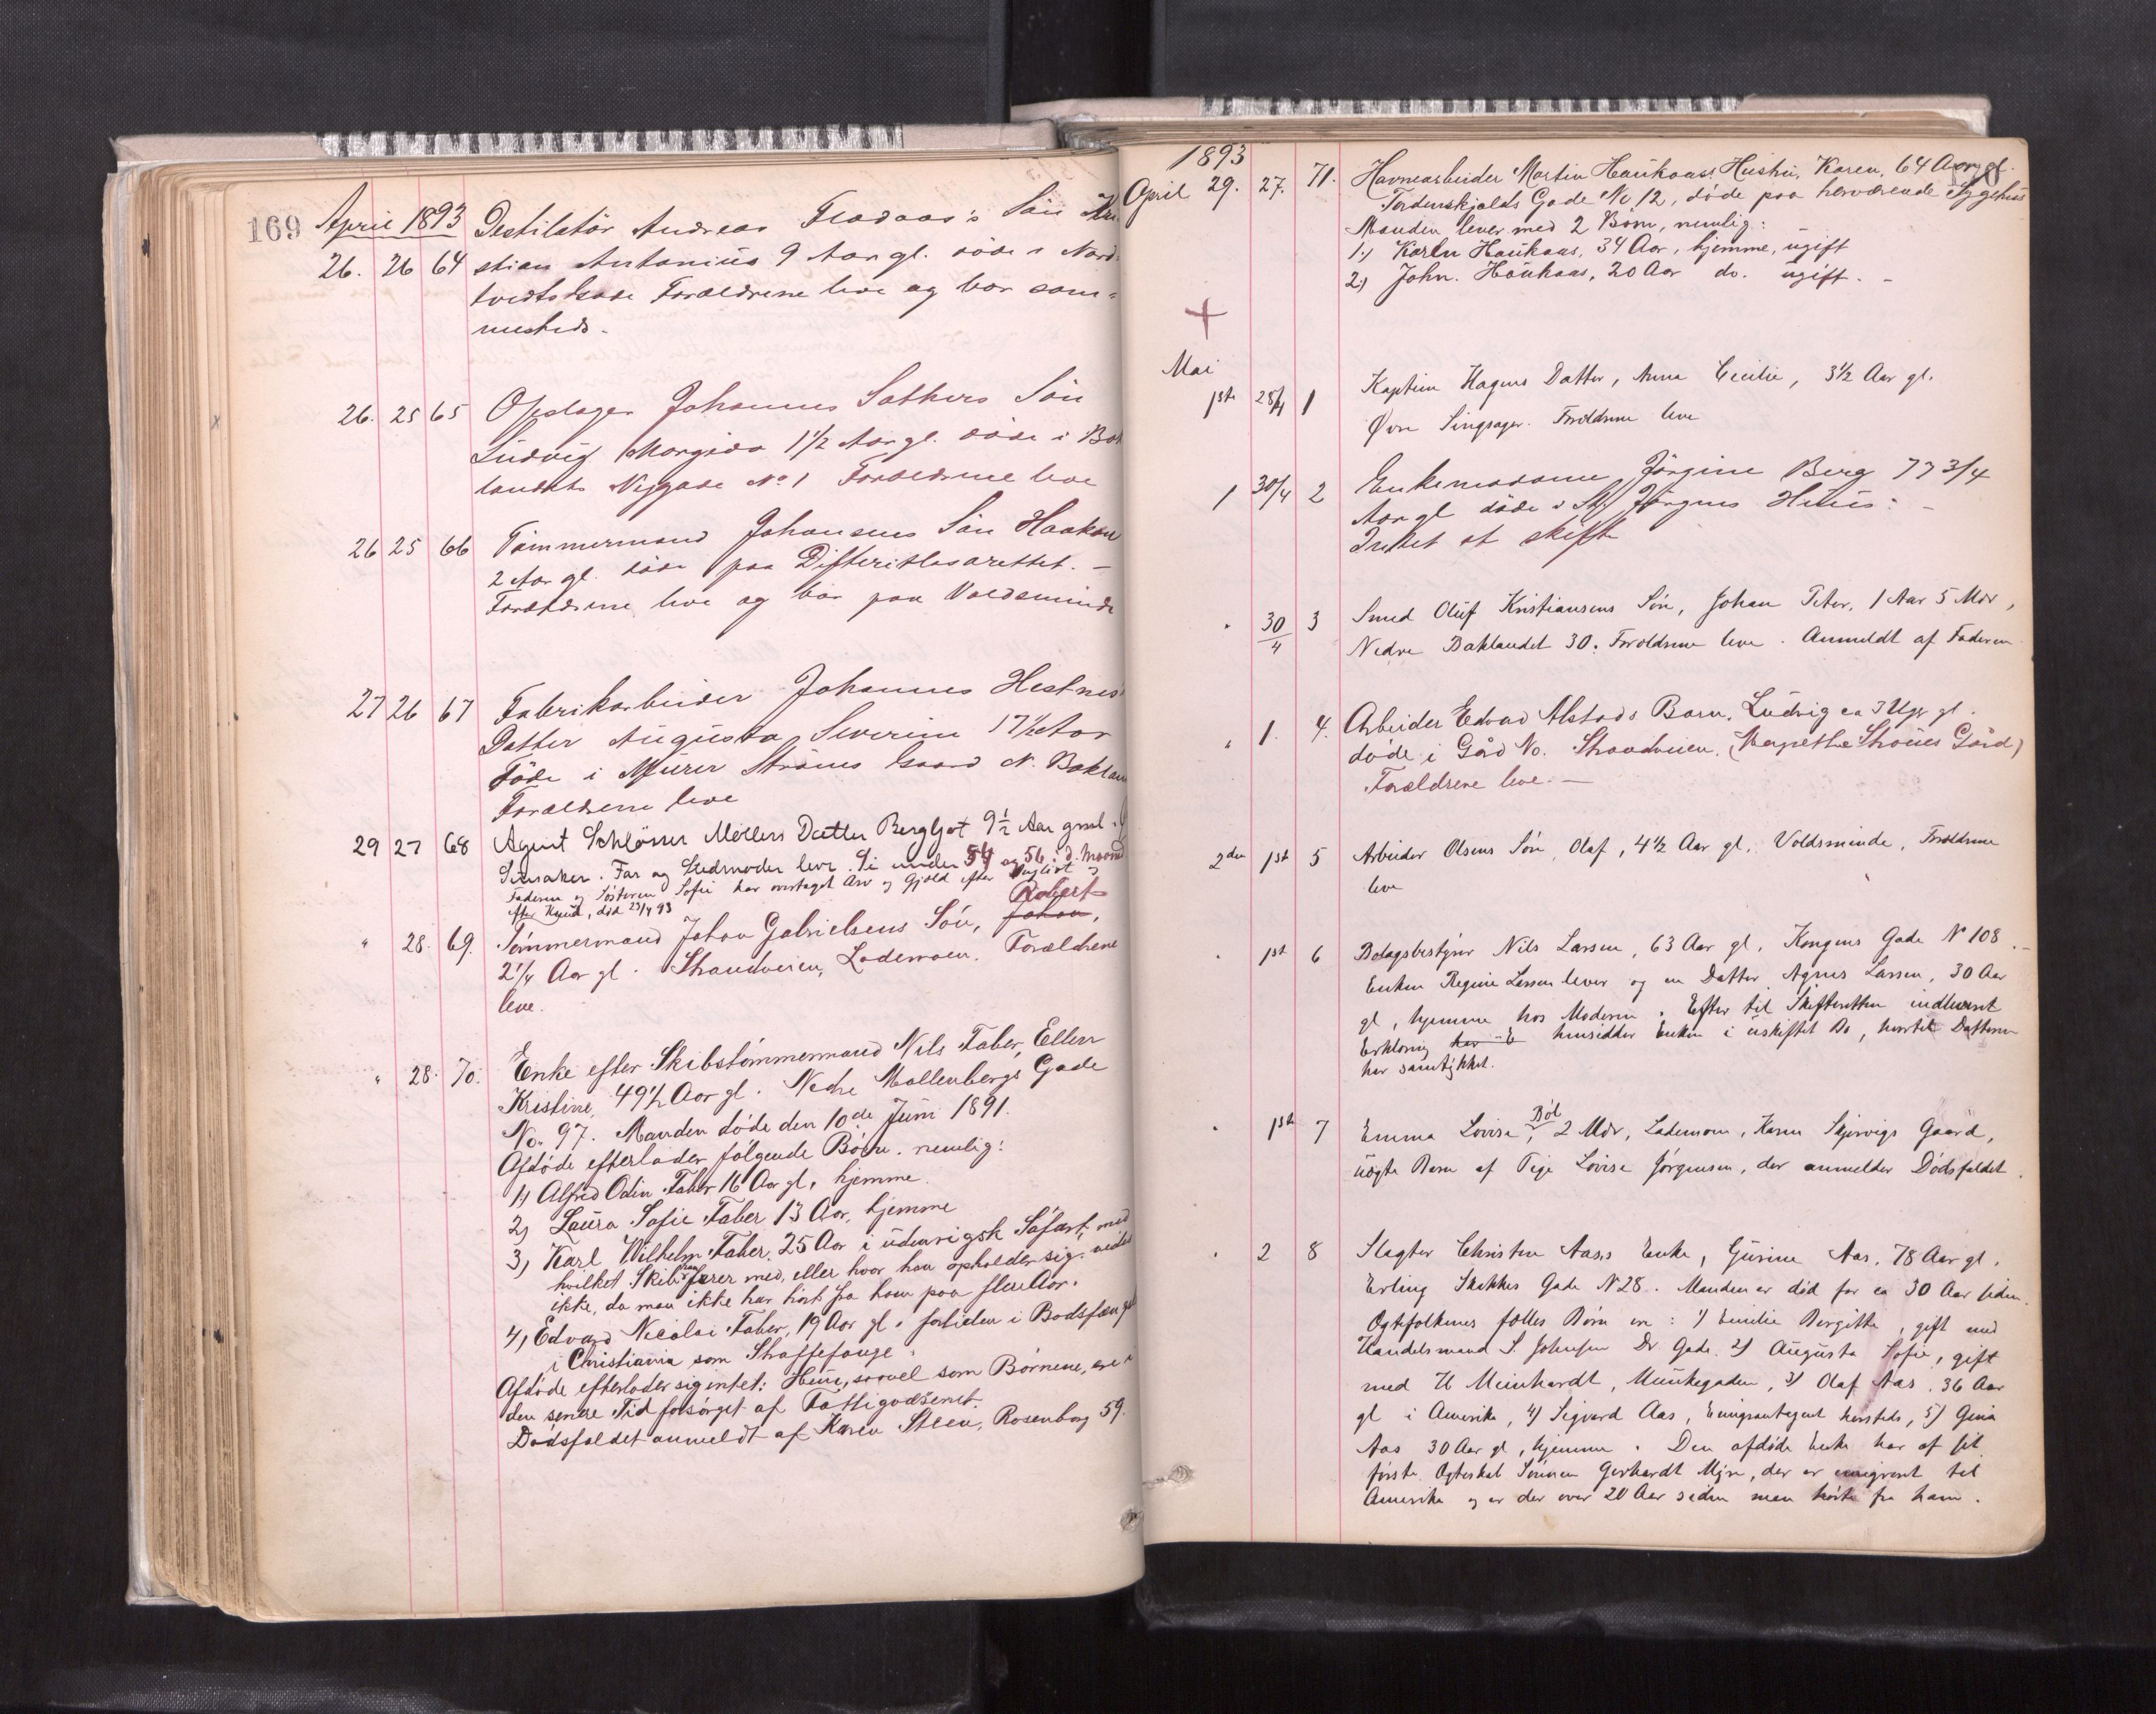 169
April 1893
Destilatör Andreas Fladaas's Sön Kri
26. 26 64 stian Antonius 9 Aar gl. döde i Nord-
tvedts Gade Forældrene leve og bor sam=
mesteds.
26. 25 65 Opsager Johannes Sathers Sön
Ludvig Margido 1 1/2 Aar gl. döde i Bak
landets Vejgade No 1 Forældrene leve
26 25 66 Tömmermand Johansens Sön Haakon
2 Aar gl. döde paa Difteritlasarettet. -
Forældrene leve og bor paa Voldsminde
27 26 67 Fabrikarbeider Johannes Hestnes'
Datter Augusta Severine 17 1/2 Aar
döde i Murer Ströms Gaard N. Baklan
Forældrene leve
29 27 68 Agent Schlösser Möllers Datter Bergljot 9 1/2 Aar gml.
Sinsaker. Far og Stedmoder leve. Se under 54 og 56. d. Maaned
Faderen og Søsteren Sofie har overtaget Arv og Gjæld efter
efter Knud, död 23/4 93
Robert
" 28. 69. Tömmermand Johan Gabrielsens Søn, Johan,
2 1/4 Aar gl. Strandveien, Lademoen. Forældrene
leve.
" 28. 70. Enke efter Skibstömmermand Nils Faber, Ellen
Kristine, 49 1/2 Aar gl. Nedre Møllenbergs Gade
No. 97. Manden døde den 10de Juni 1891.
Afdøde efterlader følgende Børn, nemlig:
1) Alfred Odin Faber 16 Aar gl, hjemme.
2) Laura Sofie Faber 13 Aar, hjemme
3) Karl Wilhelm Faber, 25 Aar i udenrigsk Søfart, med
hvilket Skib han farer med, eller hvor han opholder sig, vides
ikke, da man ikke har hørt fra ham paa flere Aar.
4) Edvard Nicolai Faber, 19 Aar gl. fortiden i Bodsfængsl
i Christiania som Straffefange.
Afdøde efterlader sig intet: Hun, saavel som Børnene, ere i
den senere Tid forsørget af Fattigvæsenet.
Dødsfaldet anmeldt af Karen Steen, Rosenborg 59.
1893
April 29. 27. 71. Havnearbeider Martin Haukaas' Hustru, Karen, 64 Aar gl.
Tordenskjolds Gade No 12, døde paa herværende Sygehus
Manden lever med 2 Børn, nemlig:
1.) Karen Haukaas, 34 Aar, hjemme, ugift
2.) John. Haukaas, 20 Aar do. ugift. -
+
Mai
1ste 28/4 1 Kaptein Hagens Datter, Anna Cecilie, 3 1/2 Aar gl.
Øvre Singsager. Forældrene leve
1 30/4 2 Enkemadame Jörgine Berg 77 3/4
Aar gl döde i St. Jörgens Huus: -
Intet at skifte
" 30/4 3 Smed Oluf Kristiansens Søn, Johan Peter, 1 Aar 5 Mdr,
Nedre Baklandet 30. Forældrene leve. Anmeldt af Faderen.
" 1. 4. Arbeider Edvard Alstads Barn, Ludvig ca 3 Uger gl.
døde i Gård No. Strandveien. (Margrethe Strøms Gård)
Forældrene leve. -
2den 1ste 5 Arbeider Olsens Søn, Olaf, 4 1/2 Aar gl, Voldsminde, Forældrene
leve
" 1ste 6 Bolagsbestyrer Nils Larsen, 63 Aar gl, Kongens Gade N 108. -
Enken Regine Larsen lever og en Datter Agnes Larsen, 30 Aar
gl, hjemme hos Moderen. Efter til Skifteretten indleveret
Erklæring har E hensidder Enken i uskiftet Bo, hvortil Datteren
har samtykket.
Døl
" 1ste 7 Emma Lovise, 2 Mdr, Lademoen, Karen Skjervigs Gaard,
uægte Barn af Pige Lovise Jørgensen, der anmelder Dødsfaldet.
" 2 8 Slagter Christen Aas's Enke, Gurine Aas, 78 Aar gl.
Erling Skakkes Gade N 28. Manden er død for ca 30 Aar siden.
Ægtefolkenes fælles Børn er: 1) Emilie Bergitte, gift med
Handelsmand S. Johnsen Dr. Gade. 2) Augusta Sofie, gift
med H Meinhardt, Munkegaden, 3) Olaf Aas, 36 Aar
gl i Amerika, 4) Sigvard Aas, Emigrantagent hersteds, 5) Gina
Aas 30 Aar gl, hjemme. Den afdøde Enke har af sit
første Ægteskab Sønnen Gerhardt Myre, der er emigreret til
Amerika og er der over 20 Aar siden man hørte fra ham.